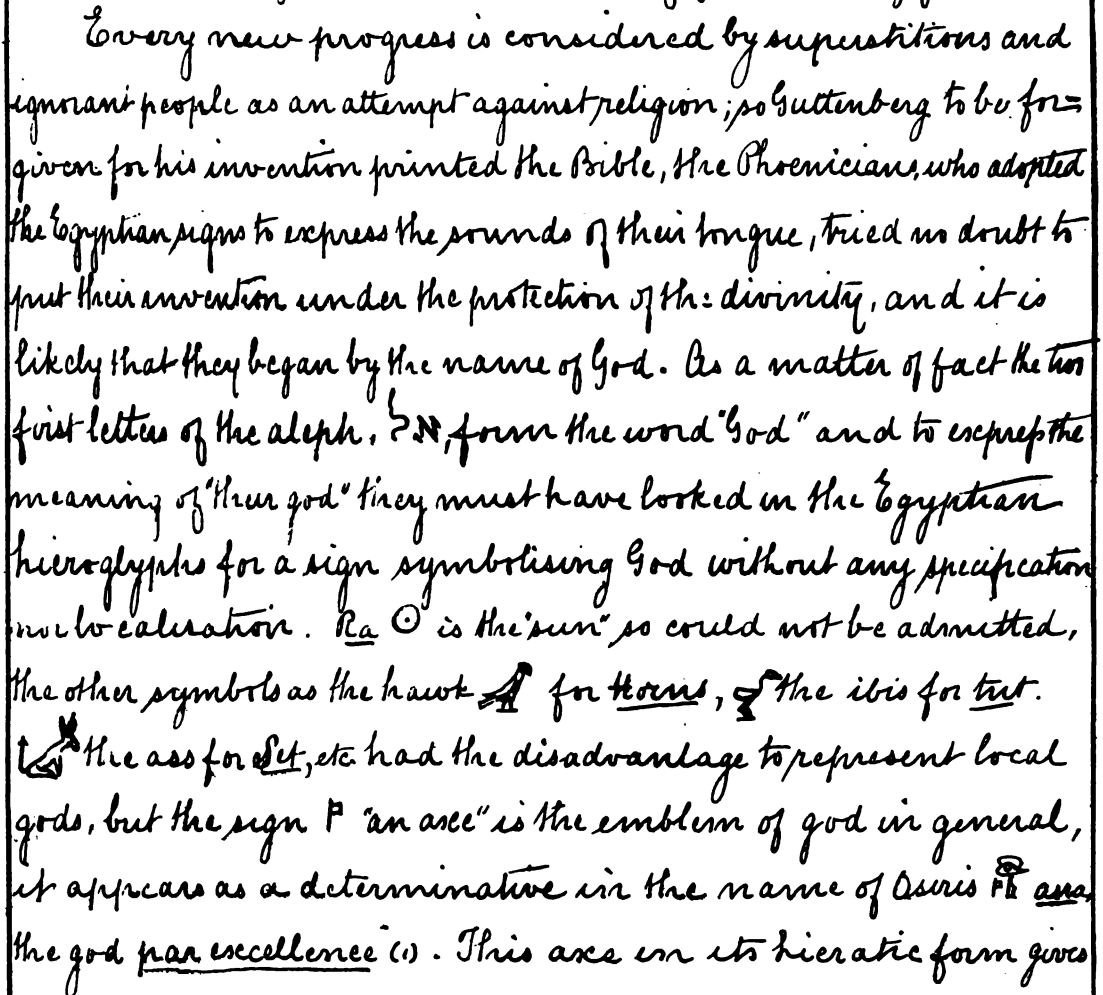 Every new progress is considered by superstitions and
ignorant people as an attempt against religion; so Guttenberg to be for=
given for his invention printed the Bible, the Phoenicians, who adopted
the Egyptian signs to express the sounds of their tongue, tried no doubt to
put their invention under the protection of the divinity, and it is
likely that they began by the name of God. As a matter of fact the two
first letters of the aleph, לא, form the word "God" and to express the
meaning of "their god" they must have looked in the Egyptian
hieroglyphs for a sign symbolising God without any specification
nor localisation. Ra ☉ is the "sun" so could not be admitted,
the other symbols as the hawk for Horus, the ibis for tut.
the ass for Set, etc had the disadvantage to represent local
gods, but the sign "an axe" is the emblem of god in general,
it appears as a determinative in the name of Osiris
the god par excellence (1). This axe in its hieratic form gives